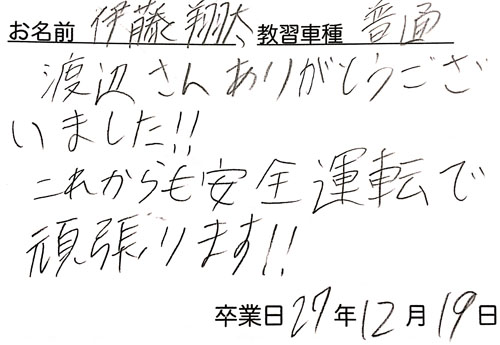 お名前 伊藤 翔大 教習車種 普通
渡辺さんありがとうござ
いました!!
これからも安全運転で
頑張ります!!
卒業日27年12月19日